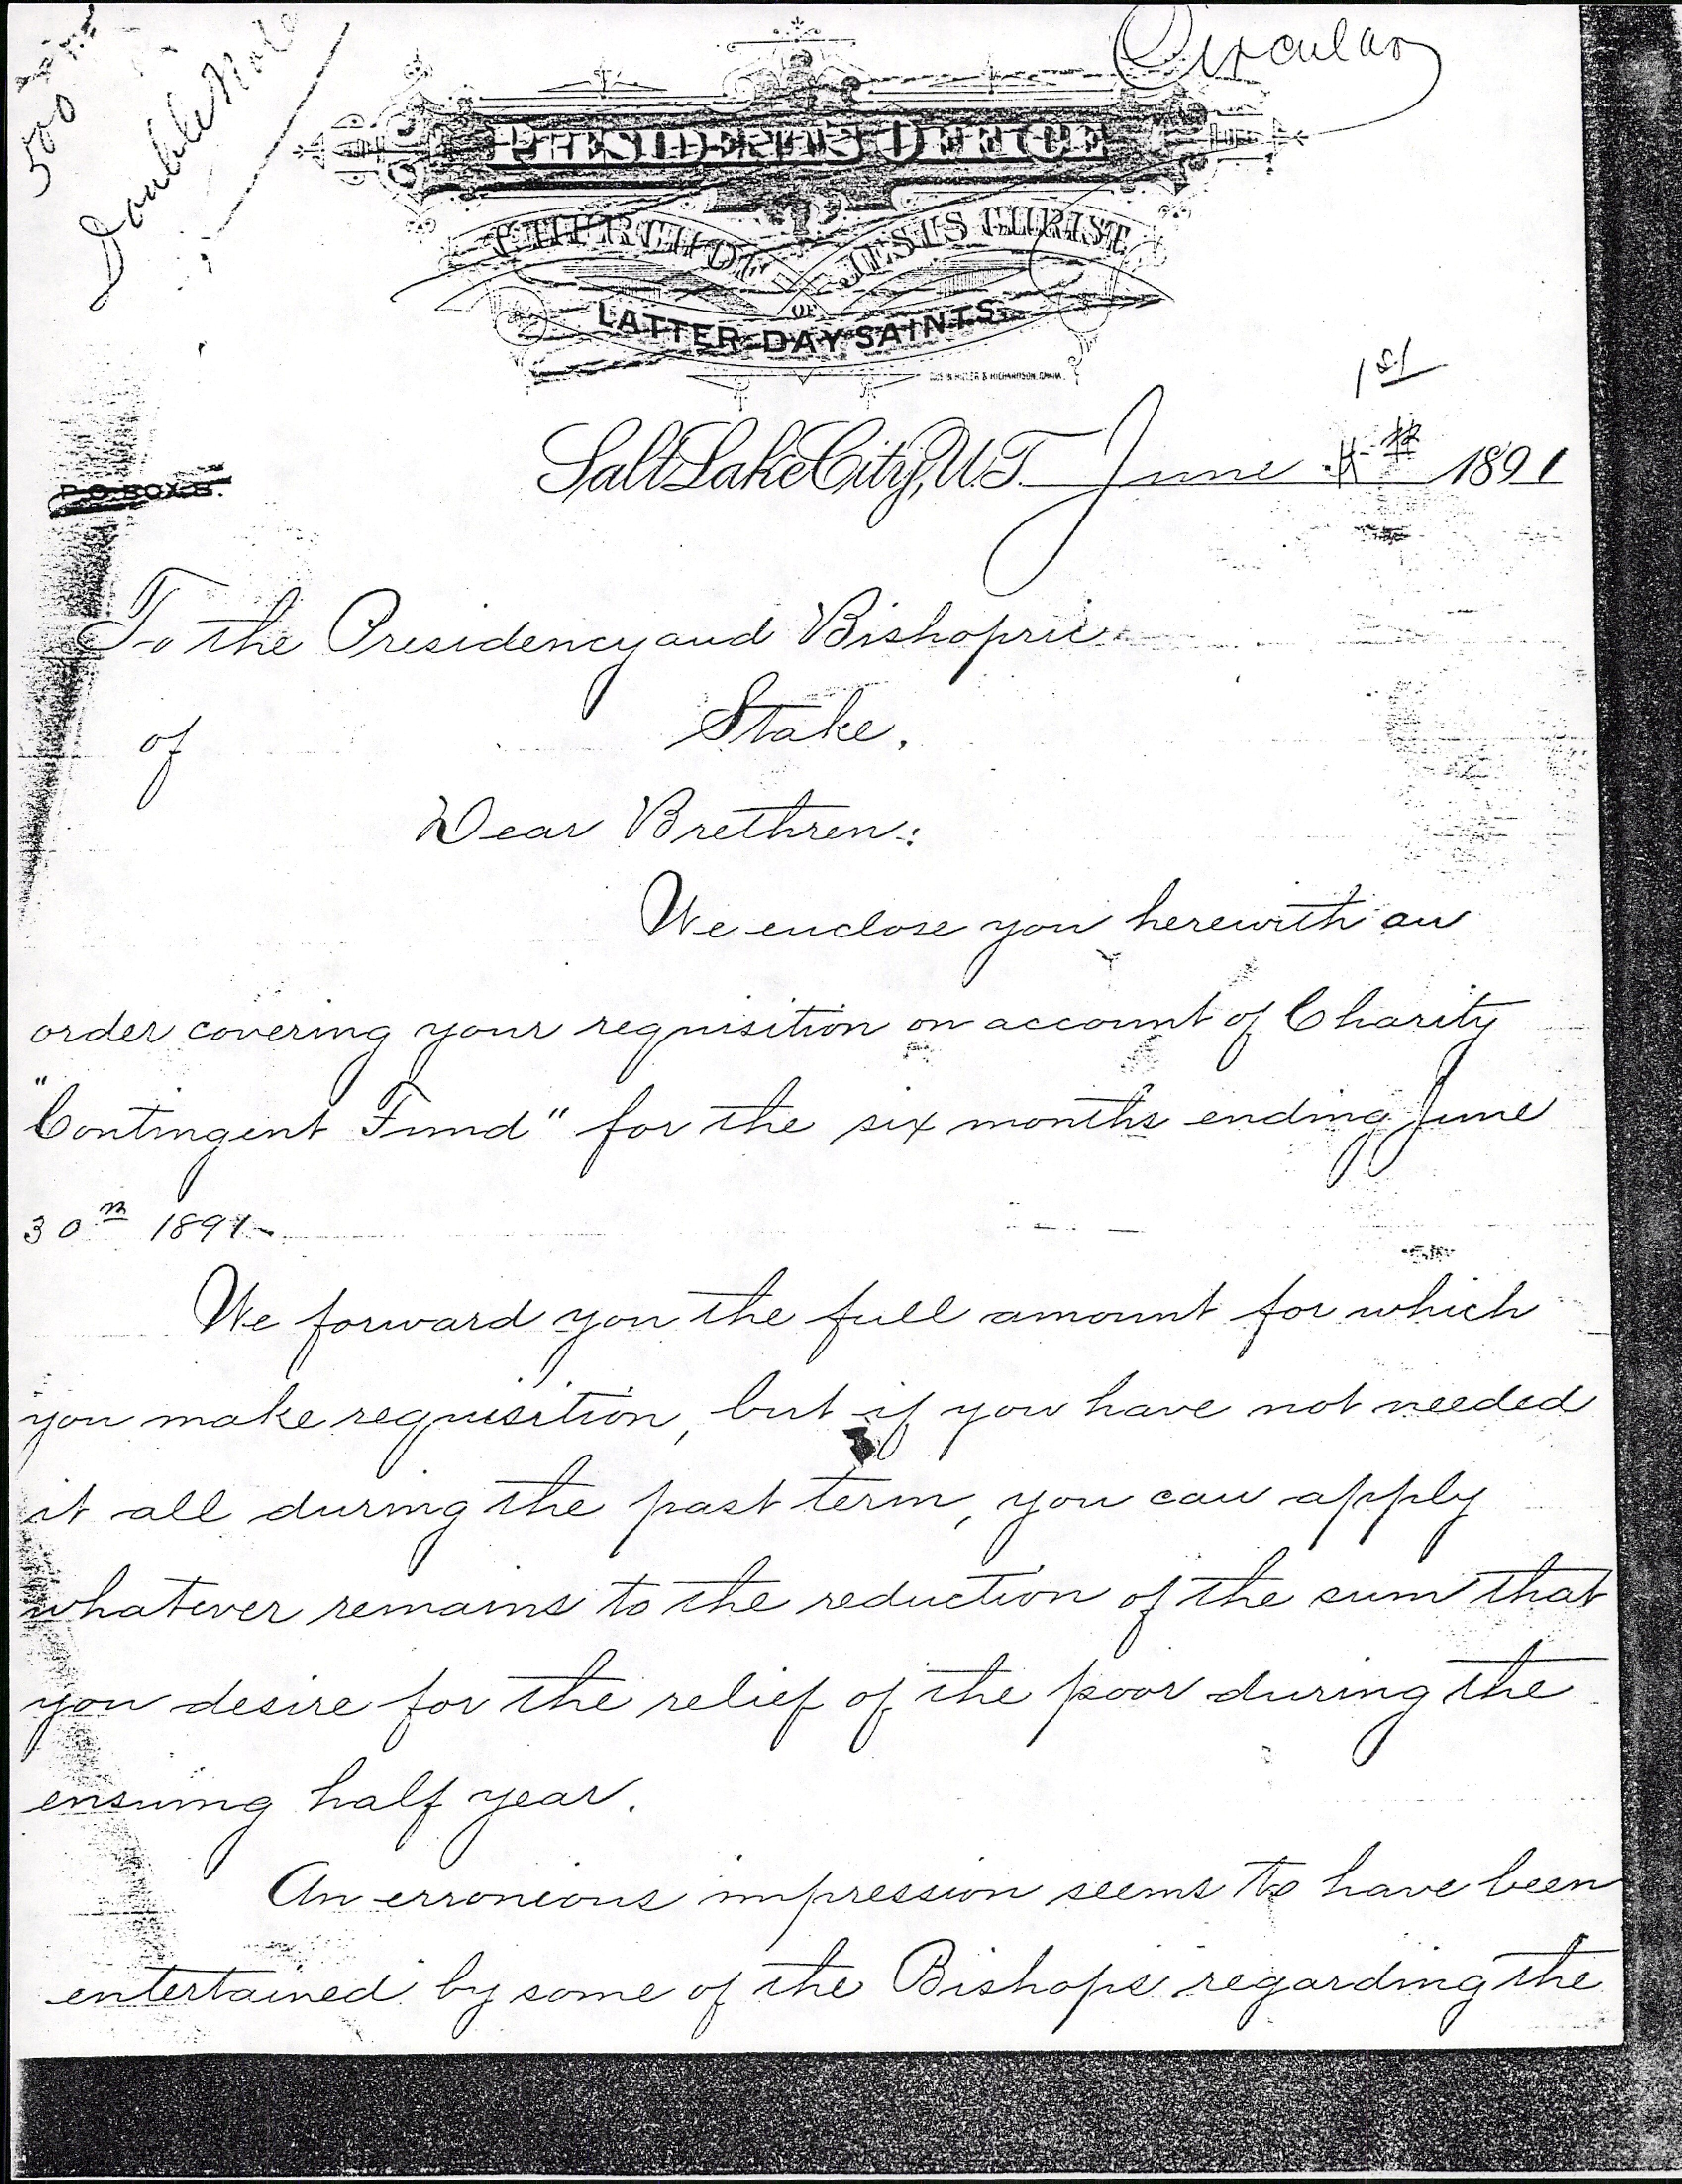 500
Double Note
Circular
PRESIDENT'S OFFICE
CHURCH OF JESUS CHRIST
OF
LATTER-DAY SAINTS.
1st
Salt Lake City, U.T. June 1891
P.O. BOX B.
To the Presidency and Bishopric
of Stake.
Dear Brethren:
We enclose you herewith an
order covering your requisition on account of Charity
"Contingent Fund" for the six months ending June
30th 1891
We forward you the full amount for which
you make requisition, but if you have not needed
it all during the past term, you can apply
whatever remains to the reduction of the sum that
you desire for the relief of the poor during the
ensuing half year.
An erronious impression seems to have been
entertained by some of the Bishops regarding the